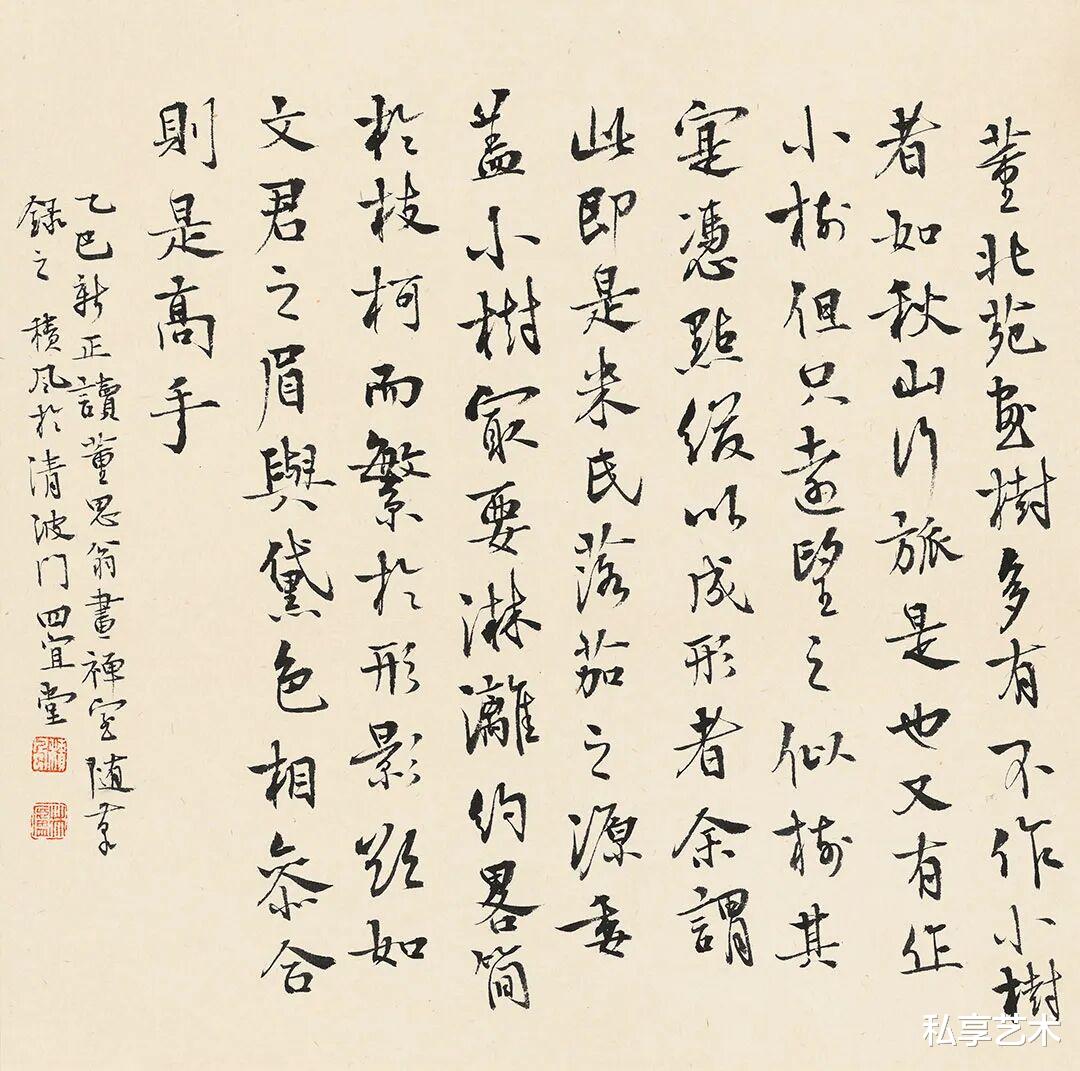 董北苑畫樹多有不作小樹
者如秋山行旅是也又有作
小樹但只遠望之似樹其
寔憑點綴以成形者余謂
此即是米氏落茄之源委
蓋小樹冣要淋漓約畧簡
於枝柯而繁於形影欲如
文君之眉與黛色相参合
則是高手
乙巳新正讀董思翁畫禅室随筆
錄之 積風於清波门四宜堂
私享艺术